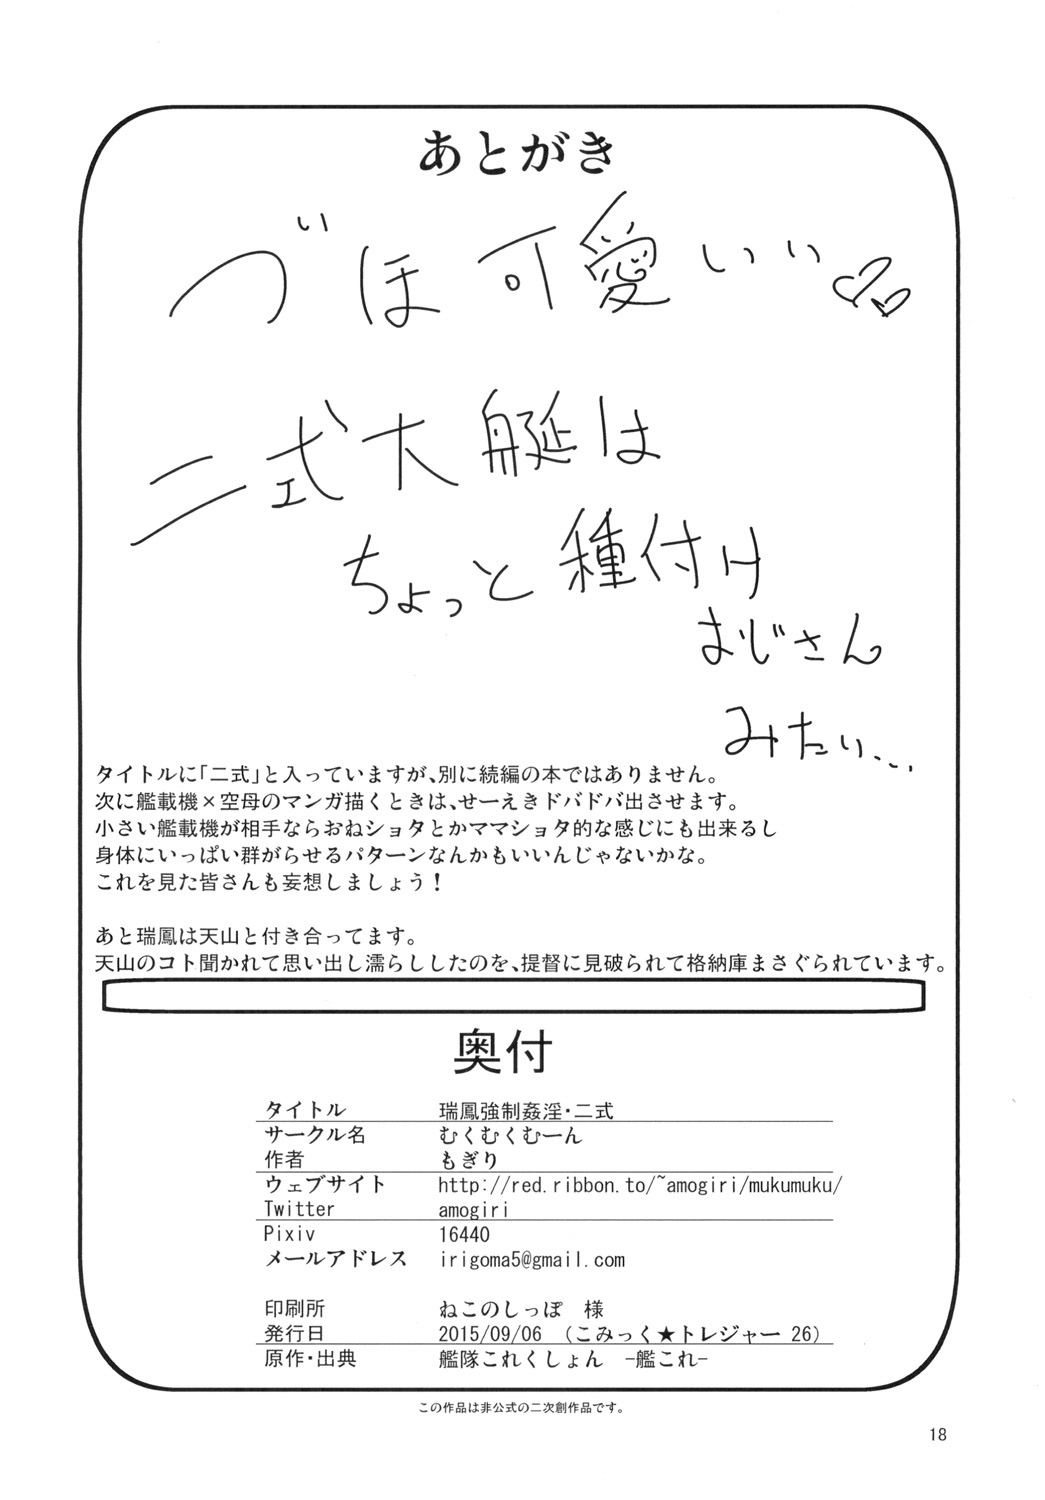 あとがき
づほ可愛いい
二式大艇は
ちょっと種付け
おじさん
みたい...
タイトルに「二式」と入っていますが、別に続編の本ではありません。
次に艦載機×空母のマンガ描くときは、せーえきドバドバ出させます。
小さい艦載機が相手ならおねショタとかママショタ的な感じにも出来るし
身体にいっぱい群がらせるパターンなんかもいいんじゃないかな。
これを見た皆さんも妄想しましょう！
あと瑞鳳は天山と付き合ってます。
天山のコト聞かれて思い出し濡らししたのを、提督に見破られて格納庫まさぐられています。
奥付
タイトル 瑞鳳強制姦淫・二式
サークル名 むくむくむーん
作者 もぎり
ウェブサイト http://red.ribbon.to/~amogiri/mukumuku/
Twitter amogiri
Pixiv 16440
メールアドレス irigoma5@gmail.com
印刷所 ねこのしっぽ 様
発行日 2015/09/06 （こみっく★トレジャー 26）
原作・出典 艦隊これくしょん -艦これ-
この作品は非公式の二次創作品です。
18